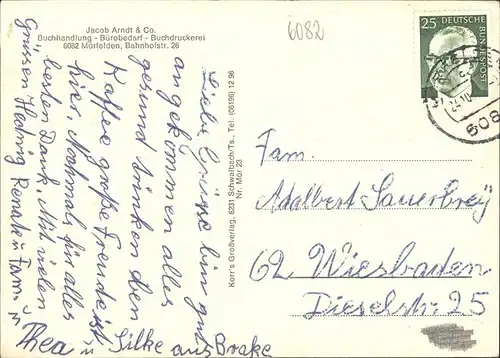 Jacob Arndt & Co.
Buchhandlung - Bürobedarf - Buchdruckerei
6082 Mörfelden, Bahnhofstr. 26
6082
25 DEUTSCHE
BUNDESPOST
608
Liebe Grüsse bin gut
angekommen alles
gesund trinken den
Kaffee große Freude ist
hier. Nochmals für alles
besten Dank. Mit vielen
Grüssen Hedwig Renate u. Fam.
u
Thea u Silke aus Brake
Korr's Großverlag, 6231 Schwalbach/Ts., Tel. (06196) 12 96
Nr. Mör 23
Fam.
Adalbert Sauerbrey
62 Wiesbaden
Dieselstr. 25